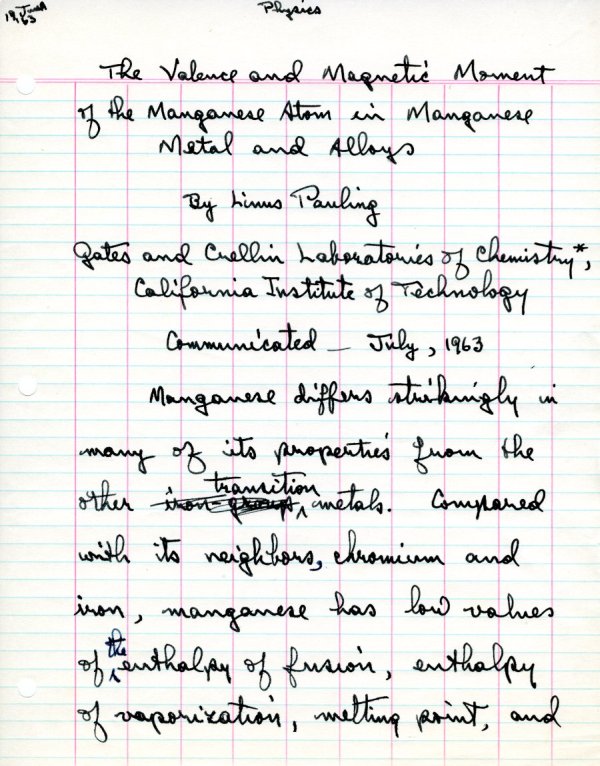 19 June 63
Physics
The Valence and Magnetic Moment
of the Manganese Atom in Manganese
Metal and Alloys
By Linus Pauling
Gates and Crellin Laboratories of Chemistry*,
California Institute of Technology
Communicated — July, 1963
Manganese differs strikingly in
many of its properties from the
other iron-group transition metals. Compared
with its neighbors, chromium and
iron, manganese has low values
of the enthalpy of fusion, enthalpy
of vaporization, melting point, and